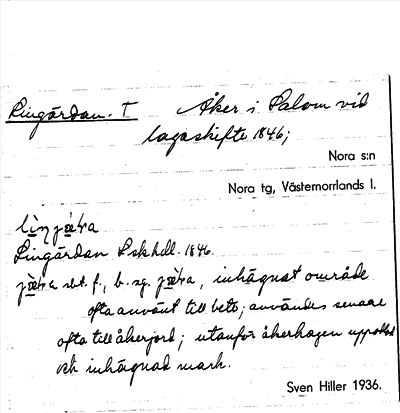 Lingärdan. T Åker i Salom vid
lagaskifte 1846;
Nora s:n
Nora tg, Västernorrlands l.
Lingärdan Lskhdl. 1846.
sbt. f., b. sg. inhägnat område
ofta använt till bete; användes senare
ofta till åkerjord; utanför åkerhagen
och inhägnad mark.
Sven Hiller 1936.